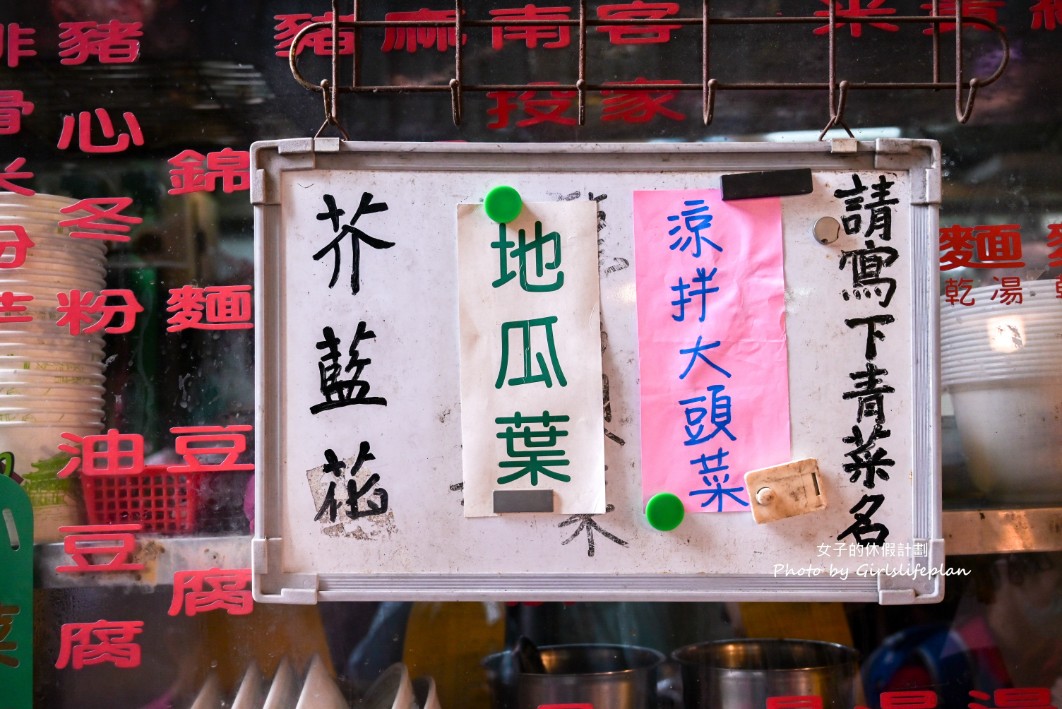 請寫下青菜名
涼拌大頭菜
地瓜葉
芥藍花
豬麻南客
投家
豬心冬粉
油豆腐
錦麵
豆腐
麵
乾湯
女子的休假計劃
Photo by Girlslifeplan